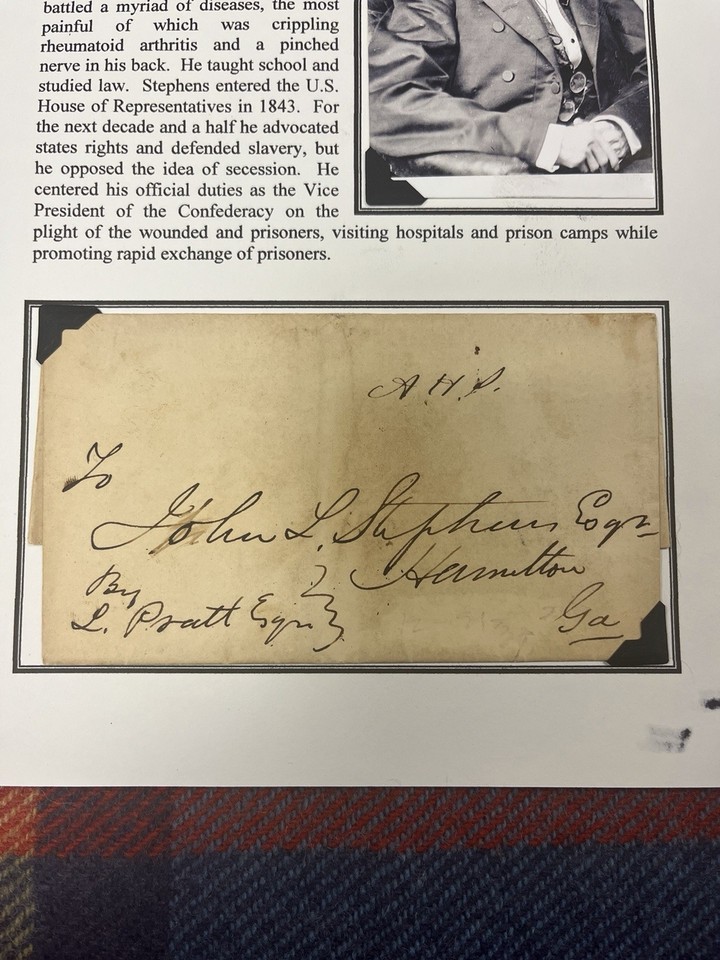 battled a myriad of diseases, the most
painful of which was crippling
rheumatoid arthritis and a pinched
nerve in his back. He taught school and
studied law. Stephens entered the U.S.
House of Representatives in 1843. For
the next decade and a half he advocated
states rights and defended slavery, but
he opposed the idea of secession. He
centered his official duties as the Vice
President of the Confederacy on the
plight of the wounded and prisoners, visiting hospitals and prison camps while
promoting rapid exchange of prisoners.
A. H. S.
To
John L. Stephens Esqr
Hamilton
Ga
By
L. Pratt Esqr